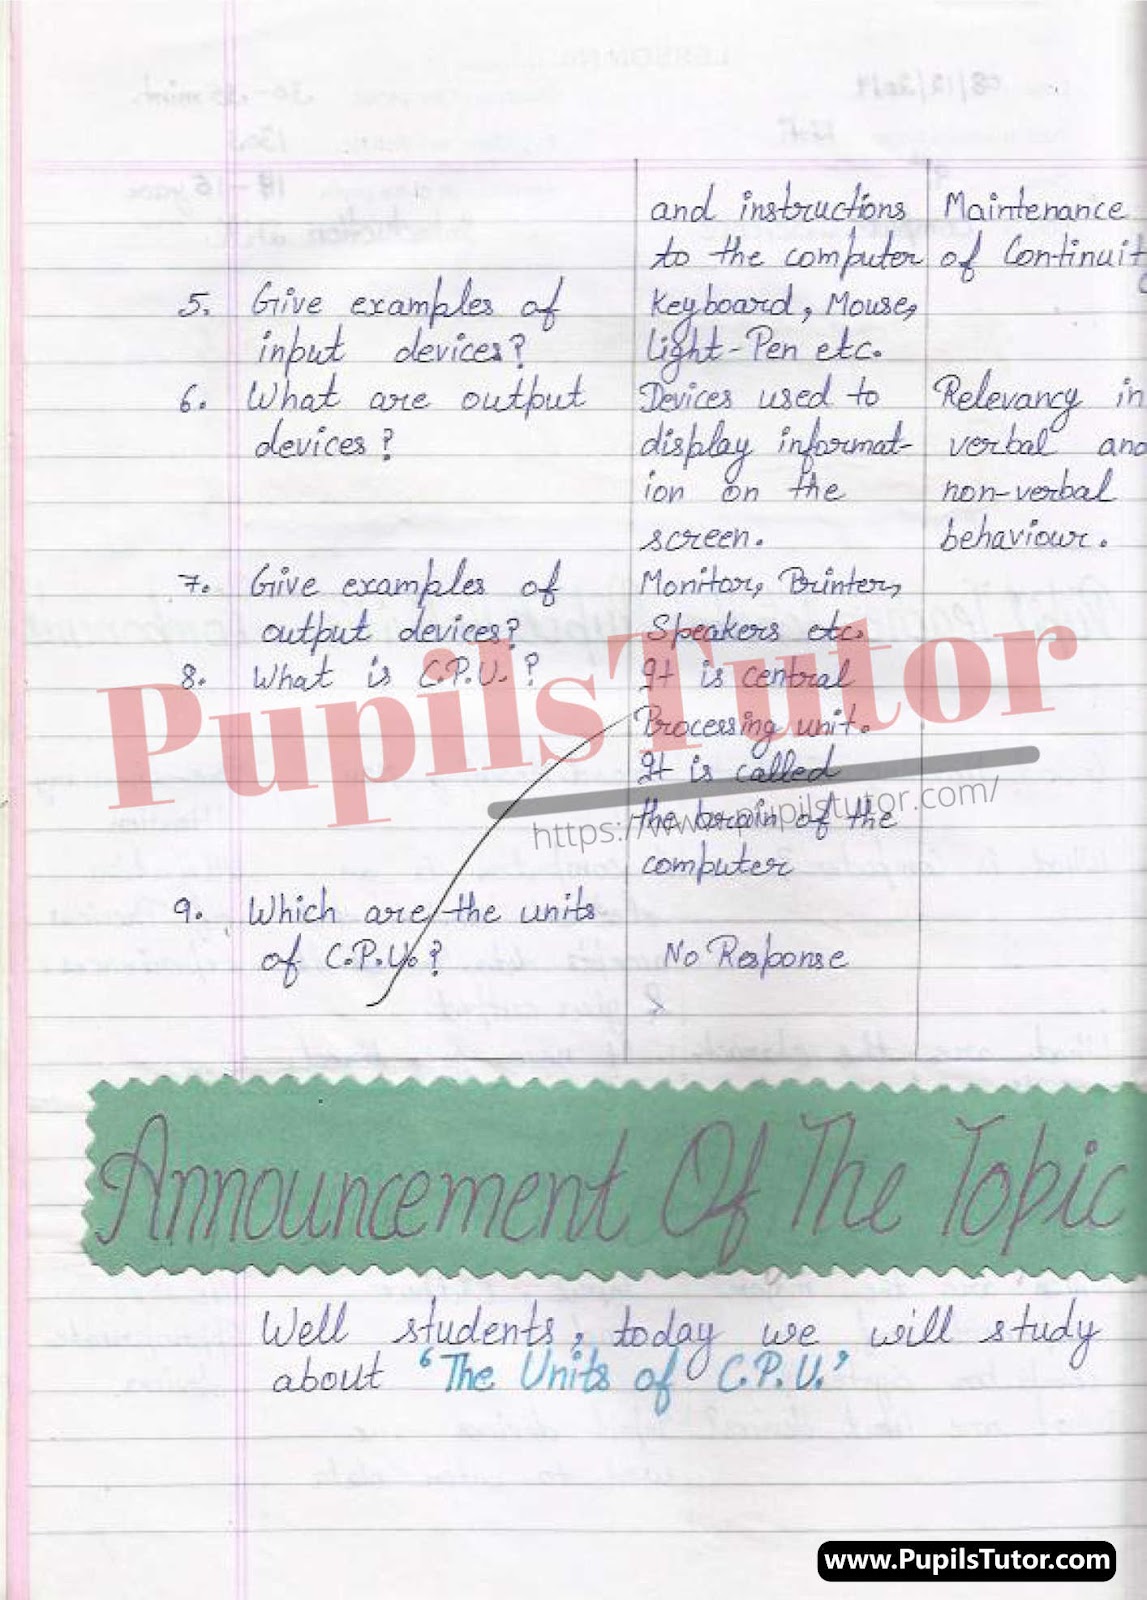 and instructions Maintenance
to the computer of Continuity
5. Give examples of Keyboard, Mouse,
input devices? Light-Pen etc.
6. What are output Devices used to Relevancy in
devices? display informat- verbal and
ion on the non-verbal
screen. behaviour.
7. Give examples of Monitor, Printer,
output devices? Speakers etc.
8. What is C.P.U.? It is central
Processing unit.
It is called
the brain of the
computer
9. Which are the units
of C.P.U.? No Response
PupilsTutor
https://www.pupilstutor.com/
Announcement Of The Topic
Well students, today we will study
about 'The Units of C.P.U.'
www.PupilsTutor.com